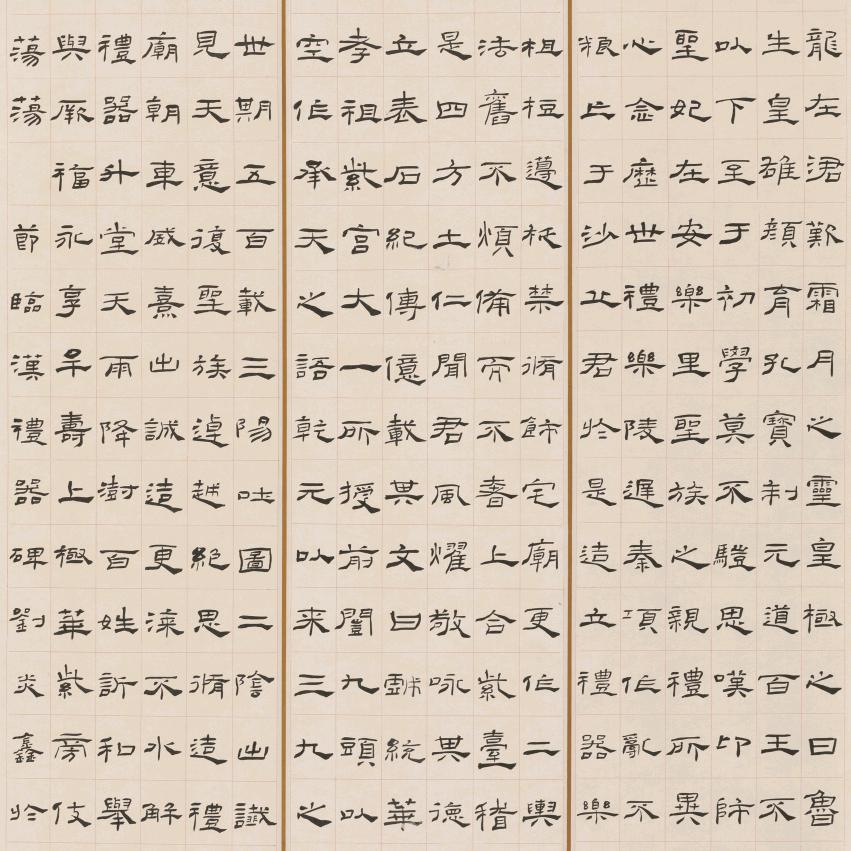 龍在涒歎霜月之靈皇極之日魯
生皇雄顏育孔寶制元道百王不
以下至于初學莫不驥思嘆卬師
聖妃在安樂里聖族之親禮所異
心念歷世禮樂陵遲秦項作亂不
粮亡于沙丘君於是造立禮器樂
柤梪籩柉禁脩飾宅廟更作二輿
法舊不煩備而不奢上合紫臺稽
是四方土仁聞君風燿敬咏其德
立表石紀傳億載其文曰戲統華
孝祖紫宮大一所授前闓九頭以
空作承天之語乾元以来三九之
世期五百載三陽吐圖二陰出讖
見天意復聖族逴越絕思脩造禮
廟朝車威熹出誠造更漆不水解
禮器升堂天雨降澍百姓訢和舉
與厥福永享牟壽上極華紫旁伎
蕩蕩 節臨漢禮器碑劉炎鑫於